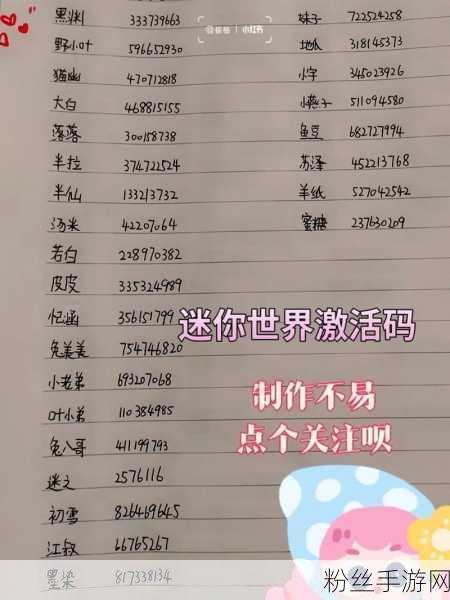 小红书
黑渊 333739663
野小叶 596652930
猫幽 470712818
大白 468815155
落落 300158738
半拉 374722524
半仙 133213732
汤米 42207064
若白 228970382
皮皮 335324989
忆涵 356151799
兔美美 754746820
小老弟 693207068
叶小弟 110384985
兔八哥 411199793
迷之 2576116
初雪 826469645
江叔 66765267
墨染 817338134
妹子 722524258
地瓜 318145373
小宇 345023926
小燕子 511094580
鱼豆 682727994
苏泽 452213768
羊纸 527042542
蜜糖 237630209
迷你世界激活码
制作不易
点个关注呗
粉丝手游网